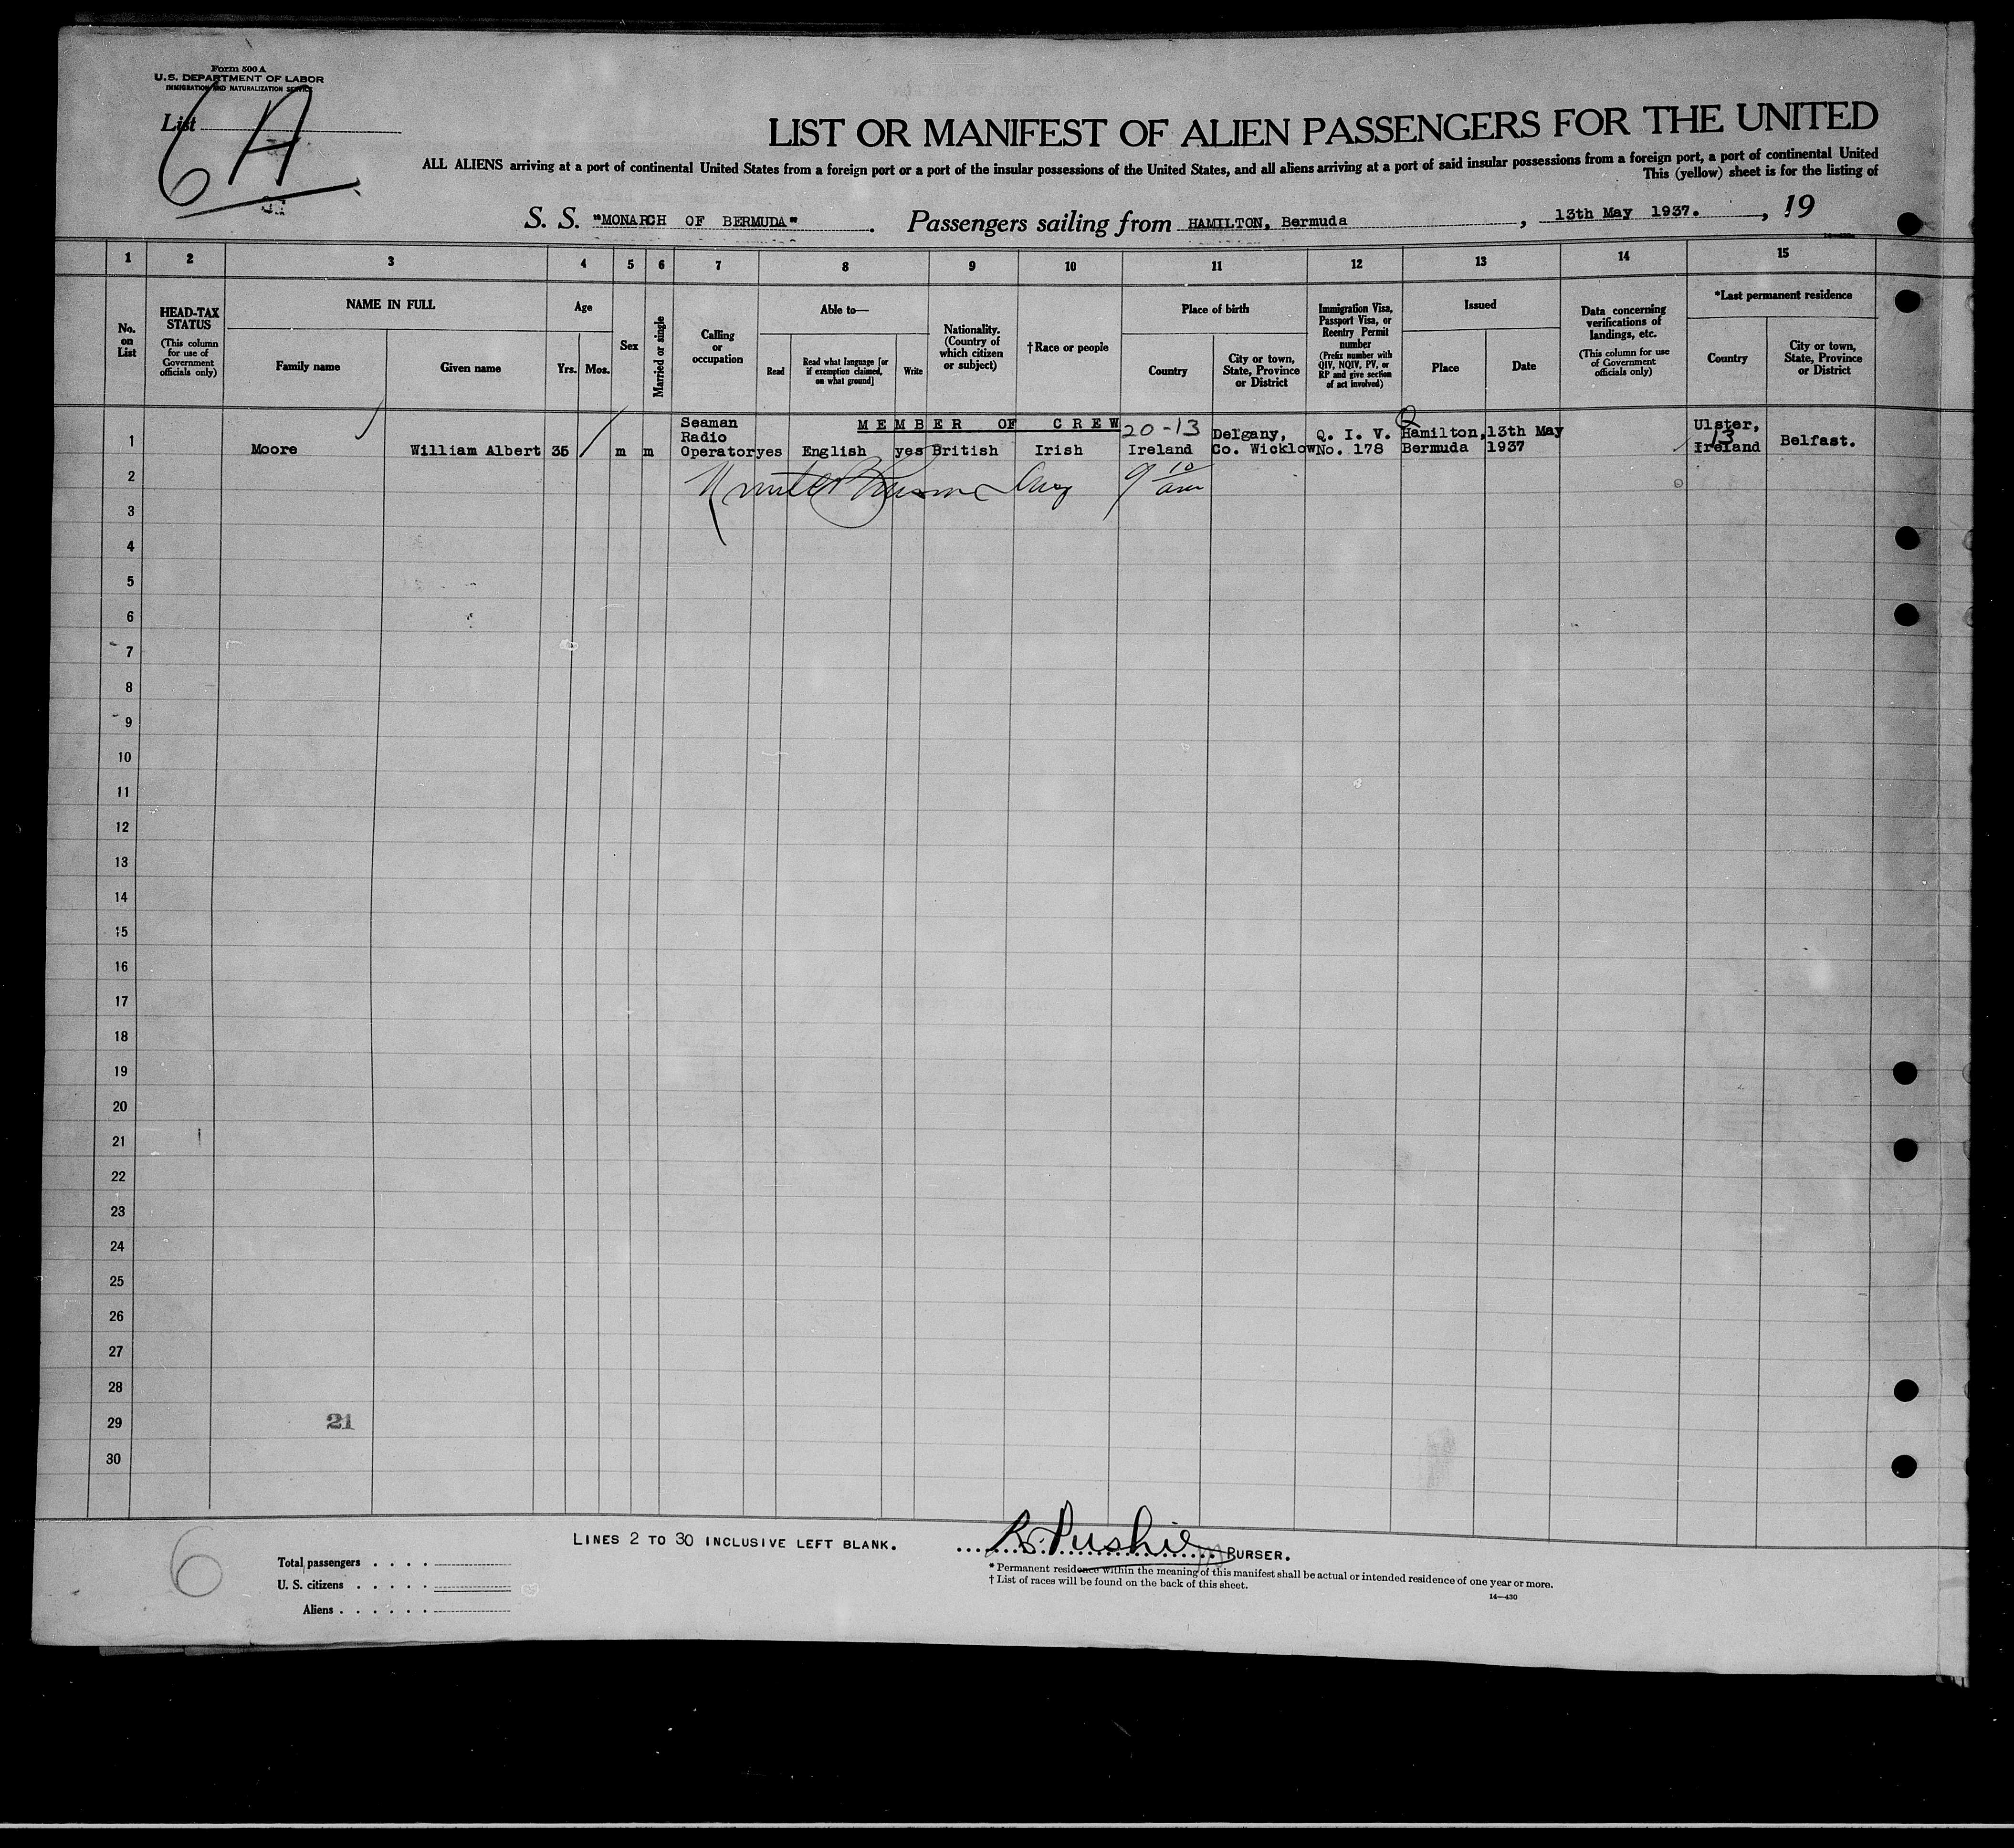 Form 500 A
U.S. DEPARTMENT OF LABOR
IMMIGRATION AND NATURALIZATION SERVICE
List
6 A
LIST OR MANIFEST OF ALIEN PASSENGERS FOR THE UNITED
ALL ALIENS arriving at a port of continental United States from a foreign port or a port of the insular possessions of the United States, and all aliens arriving at a port of said insular possessions from a foreign port, a port of continental United
This (yellow) sheet is for the listing of
S. S. "MONARCH OF BERMUDA". Passengers sailing from HAMILTON, Bermuda, 13th May 1937., 19
1 2 3 4 5 6 7 8 9 10 11 12 13 14 15
No. on List
HEAD-TAX STATUS
(This column for use of Government officials only)
NAME IN FULL
Family name
Given name
Age
Yrs. Mos.
Sex
Married or single
Calling or occupation
Able to—
Read
Read what language [or if exemption claimed, on what ground]
Write
Nationality. (Country of which citizen or subject)
†Race or people
Place of birth
Country
City or town, State, Province or District
Immigration Visa, Passport Visa, or Reentry Permit number
(Prefix number with QIV, NQIV, PV, or RP and give section of act involved)
Issued
Place
Date
Data concerning verifications of landings, etc.
(This column for use of Government officials only)
*Last permanent residence
Country
City or town, State, Province or District
MEMBER OF CREW
20-13
1 Moore William Albert 35 m m Seaman Radio Operator yes English yes British Irish Ireland Delgany, Co. Wicklow Q. I. V. No. 178 Hamilton, Bermuda 13th May 1937 Ulster, Ireland Belfast.
13
2
3
4
5
6
7
8
9
10
11
12
13
14
15
16
17
18
19
20
21
22
23
24
25
26
27
28
29 21
30
LINES 2 TO 30 INCLUSIVE LEFT BLANK.
PURSER.
6
Total passengers . . . .
U. S. citizens . . . . .
Aliens . . . . . .
*Permanent residence within the meaning of this manifest shall be actual or intended residence of one year or more.
†List of races will be found on the back of this sheet.
14—430